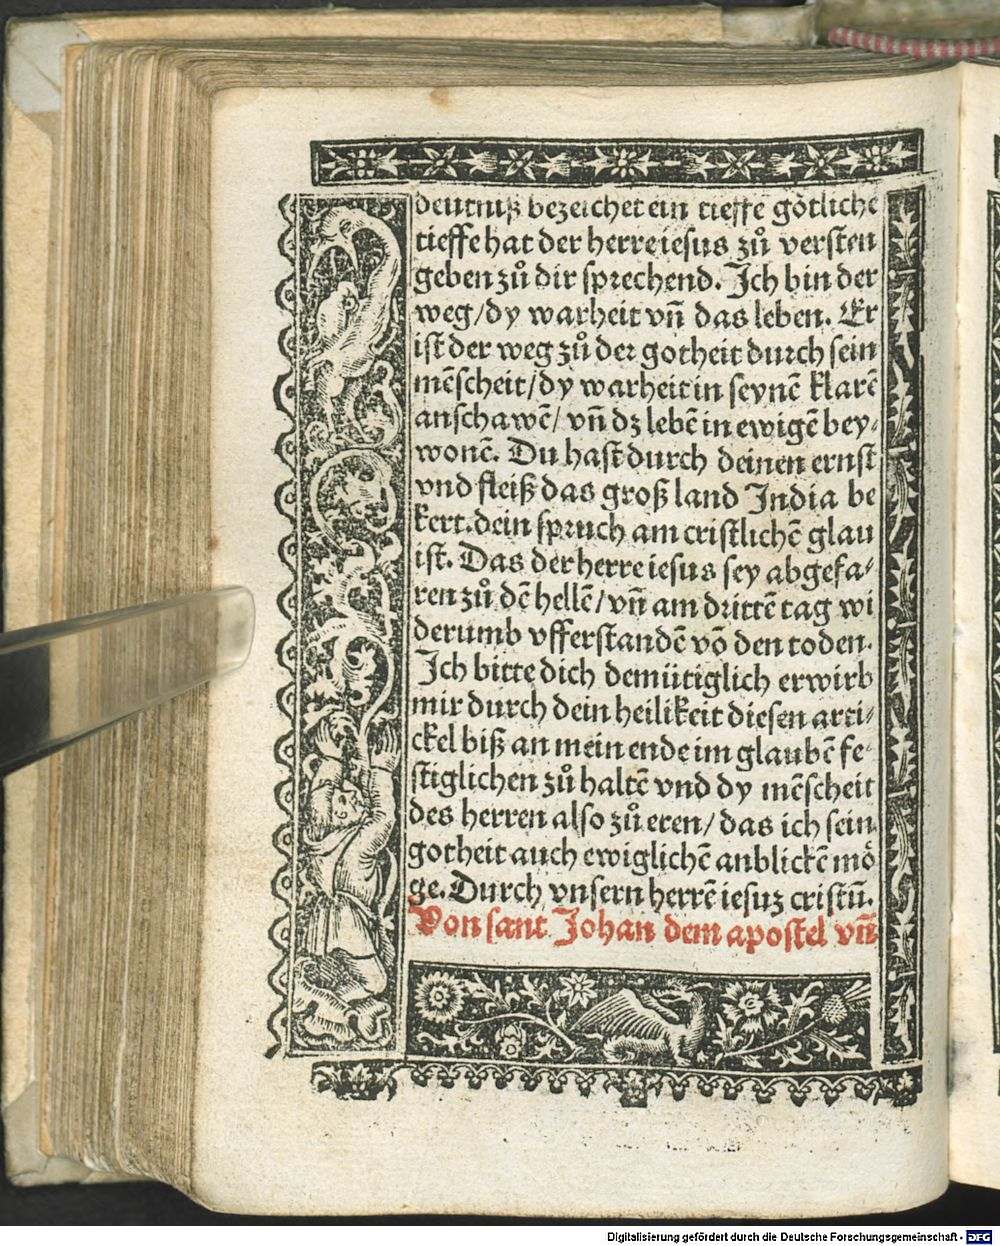 deutniß bezeichet ein tieffe götliche
tieffe hat der herre iesus zů versten
geben zů dir sprechend. Ich bin der
weg/dy warheit vñ das leben. Er
ist der weg zů der gotheit durch sein
mēscheit/dy warheit in seynē klarē
anschawē/ vñ dz lebē in ewigē bey⸗
wonē. Du hast durch deinen ernst
vnd fleiß das groß land India be
kert. dein spruch am cristlichē glau
ist. Das der herre iesus sey abgefa⸗
ren zů dē hellē/vñ am drittē tag wi
derumb vfferstandē vō den toden.
Ich bitte dich demütiglich erwirb
mir durch dein heilikeit diesen arti⸗
ckel biß an mein ende im glaubē fe⸗
stiglichen zů haltē vnd dy mēscheit
des herren also zů eren/ das ich sein
gotheit auch ewiglichē anblickē mö
ge. Durch vnsern herrē iesuz cristū.
Von sant Johan dem apostel vñ
Digitalisierung gefördert durch die Deutsche Forschungsgemeinschaft - DFG